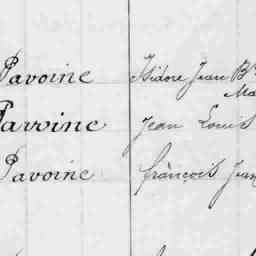 Pavoine Isidore Jean Bte
Ma
Pavoine Jean Louis
Pavoine françois Jean